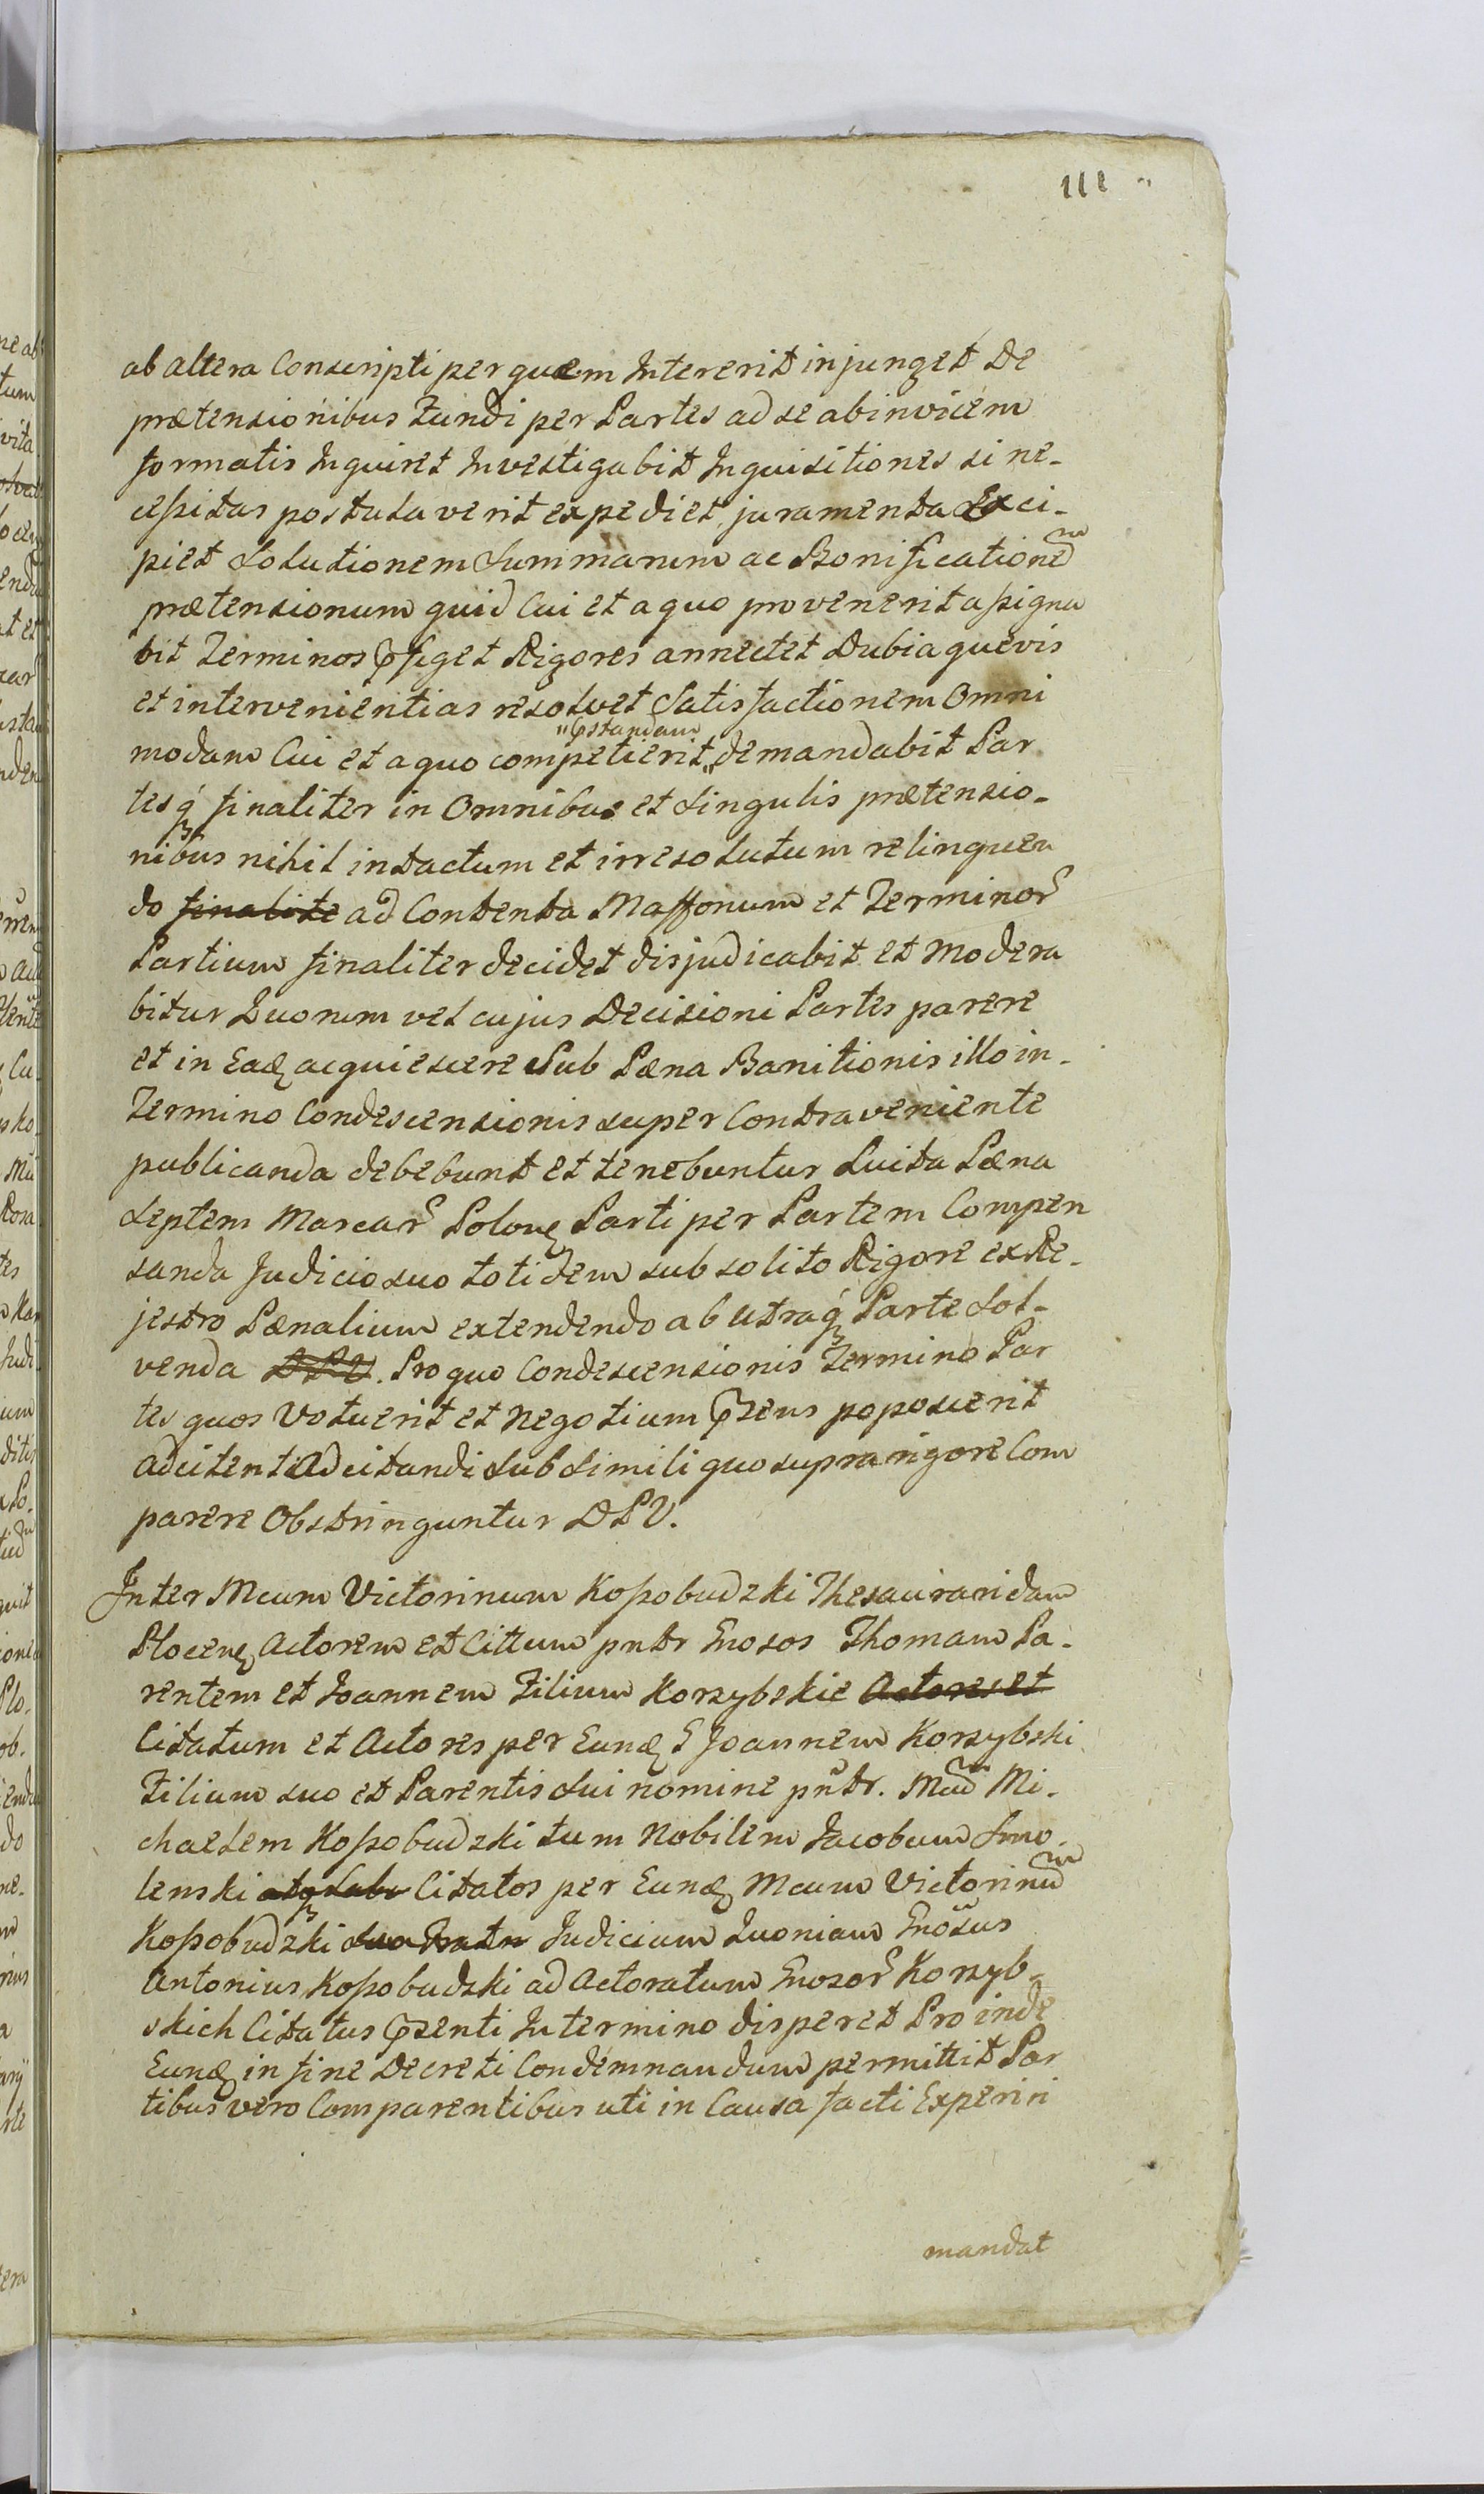 111
ab altera Conscripti per quem Intererit injunget De
prætensionibus Fundi per Partes ad se abinvicem
formatis Inquiret Investigabit Inquisitiones si ne-
cessitas postulaverit expediet juramenta Exci-
piet Solutionem Summarum ac Bonificationem
prætensionum quid Cui et a quo provenerit assigna
bit Terminos pfiget Rigores annectet Dubia quevis
et intervenientias resolvet Satisfactionem Omni
"pstandam
modam Cui et a quo competierit "demandabit Par
tesq finaliter in Omnibus et Singulis prætensio-
nibus nihil intactum et irresolutum relinquen
do finalite ad Contenta Massonum et Terminor
Partium finaliter decidet disjudicabit et Modera
bitur Quorum vel cujus Decisioni Partes parere
et in Eadq acquiescere Sub Pæna Banitionis illo in-
Termino Condescensionis super Contraveniente
publicanda debebunt et tenebuntur Luita Pæna
Septem Marcar Polonq Parti per Partem Compen
sanda Judicio suo totidem sub solito Rigore ex Re-
jestro Pænalium extendendo ab Utraq Parte Sol-
venda DPV. Pro quo Condescensionis Termino Par
tes quos Voluerit et Negotium pzens poposcerit
adcitent Adcitandi Sub Simili quo supra rigore Com
parere Obstringuntur DPV.
Inter Mcum Victorinum Kossobudzki Thesauraridam
Plocenq Actorem et Cittum pntr Gnosos Thomam Pa-
rentem et Joannem Filium Korzybskie Actores et
Citatum et Actores per Eundq G Joannem Korzybski
Filium suo et Parentis Sui nomine pntr. Mcum Mi-
chaelem Kossobudzki tum Nobilem Jacobum Smo-
lenski atq Citatos per Eundq Mcum Victorinum
Kossobudzki Judicium Quoniam Gnosus
Antonius Kossobudzki ad Actoratum Gnosor Korzyb-
skich Citatus pzenti In termino disperet Pro inde
Eundq in fine Decreti Condemnandum permittit Par
tibus vero Comparentibus uti in Causa facti Experiri
mandat